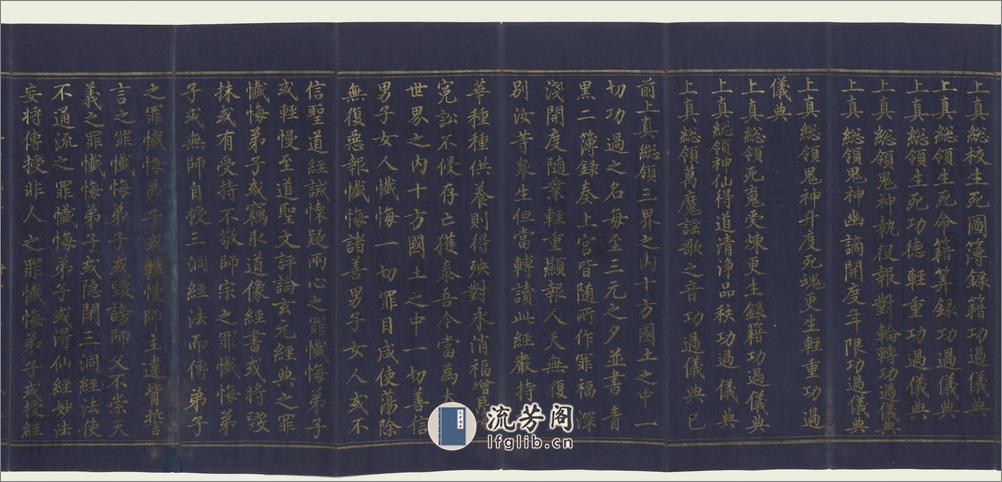 上真総校生死圖簿録籍功過儀典
上真総領生死命籍筭録功過儀典
上真総領生死功德輕重功過儀典
上真総領鬼神執役報對輪轉功過儀典
上真総領鬼神幽謫開度年限功過儀典
上真総領鬼神升度死魂更生輕重功過
儀典
上真総領死鬼受煉更生録籍功過儀典
上真総領神仙得道清淨品秩功過儀典
上真総領萬魔謡歌之音功過儀典已
前上真総領三界之內十方國土之中一
切功過之名每至三元之夕並書青
黑二簿録奏上宮皆随所作罪福深
淺開度随業輕重顯報人天無復
別汝等衆生但當轉讀此經嚴持
華種種供養則得殃對永消福曾
寃訟不侵存亡獲泰吾今當為
世界之內十方國土之中一切善信
男子女人懺悔一切罪目咸使蕩除
無復惡報懺悔諸善男子女人或不
信聖道經誡懷疑兩心之罪懺悔弟子
或輕慢至道聖文評論玄元經典之罪
懺悔弟子或竊取道像經書或將毀
抹或有受持不敬師宗之罪懺悔弟
子或無師自授三洞經法而傳弟子
之罪懺悔弟子或輕慢師主違背誓
言之罪懺悔弟子或毀謗師父不崇天
義之罪懺悔弟子或隠閉三洞經法使
不通流之罪懺悔弟子或得仙經妙法
妄將傳授非人之罪懺悔弟子或授經
流芳阁
lfglib.cn